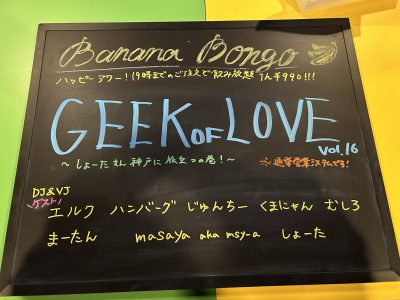 Banana Bongo
ハッピーアワー!19時までのご注文で飲み放題1人¥990!!!
GEEK OF LOVE
vol.16
~しょーたさん神戸に旅立つの巻!~
※通常営業システムです!
DJ&VJ
ゲスト!
エルク ハンバーグ じゅんちー くまにゃん むしろ
まーたん masaya aka msy-a しょーた